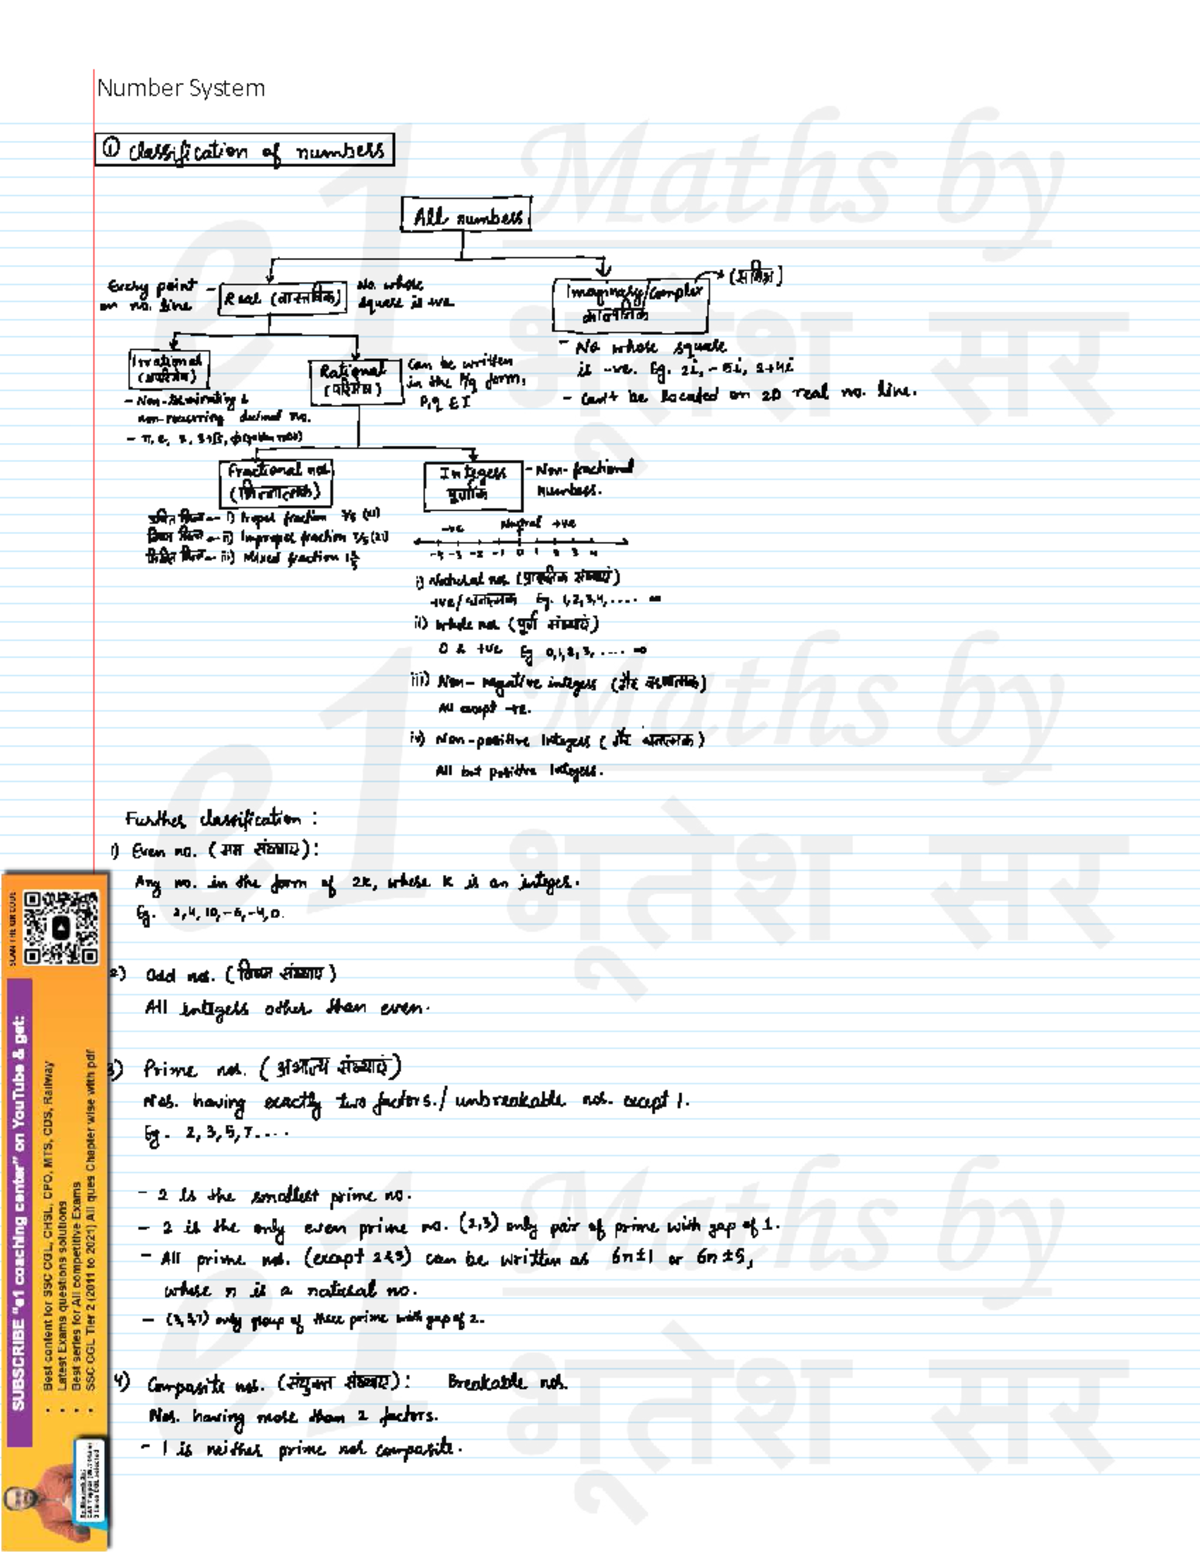 Number System
① Classification of numbers
All numbers
Every point on no. line
Real (वास्तविक)
No. whose square is +ve
Imaginary/Complex
काल्पनिक
(सम्मिश्र)
- No whose square
is -ve. Eg. 2i, -5i, 2+4i
- Can't be located on 2D real no. line.
Irrational
(अपरिमेय)
- Non-terminating &
non-recurring decimal no.
Rational
(परिमेय)
Can be written
in the P/q form,
P,q ∈ I
Fractional nos.
(भिन्नात्मक)
i) Proper fraction
ii) Improper fraction
iii) Mixed fraction
Integers
पूर्णांक
- Non-fractional
numbers.
-ve Neutral +ve
-4 -3 -2 -1 0 1 2 3 4
i) Natural nos. (प्राकृतिक संख्याएं)
+ve/धनात्मक Eg. 1,2,3,4,..... ∞
ii) Whole nos. (पूर्ण संख्याएं)
0 & +ve Eg 0,1,2,3,.... ∞
iii) Non-negative integers (गैर ऋणात्मक)
All except -ve.
iv) Non-positive Integers (गैर धनात्मक)
All but positive Integers.
Further classification :
1) Even no. (सम संख्याएं):
Any no. in the form of 2k, where k is an integer.
Eg. 2,4,10,-6,-4,0.
2) Odd nos. (विषम संख्याएं)
All integers other than even.
3) Prime nos. (अभाज्य संख्याएं)
Nos. having exactly two factors./ unbreakable nos. except 1.
Eg. 2,3,5,7....
- 2 is the smallest prime no.
- 2 is the only even prime no. (2,3) only pair of prime with gap of 1.
- All prime nos. (except 2&3) can be written as 6n±1 or 6n±5,
where n is a natural no.
- (3,5,7) only group of three prime with gap of 2.
4) Composite nos. (संयुक्त संख्याएं): Breakable nos.
Nos. having more than 2 factors.
- 1 is neither prime nor composite.
SCAN THE QR CODE
SUBSCRIBE "e1 coaching center" on YouTube & get:
• Best content for SSC CGL, CHSL, CPO, MTS, CDS, Railway
• Latest Exams questions solutions
• Best series for All competitive Exams
• SSC CGL Tier 2 (2011 to 2021) All ques Chapter wise with pdf
e1 Maths by
भूतेश सर
e1 Maths by
भूतेश सर
e1 Maths by
भूतेश सर